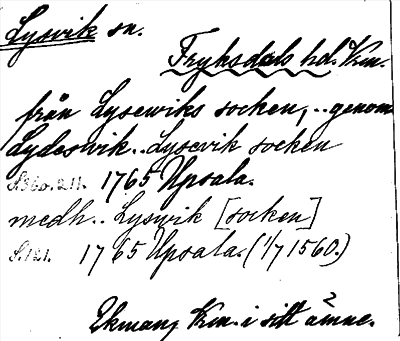 Lysvik sn.
Fryksdals hd. Krm.
från Lysewiks socken, .. genom
Lydeswik .. Lysevik socken
S. 360. 211. 1765 Upsala.
medh .. Lyswik [socken]
S. 121. 1765 Upsala. (1/7 1560.)
Ekman, Krm. i sitt ämne.